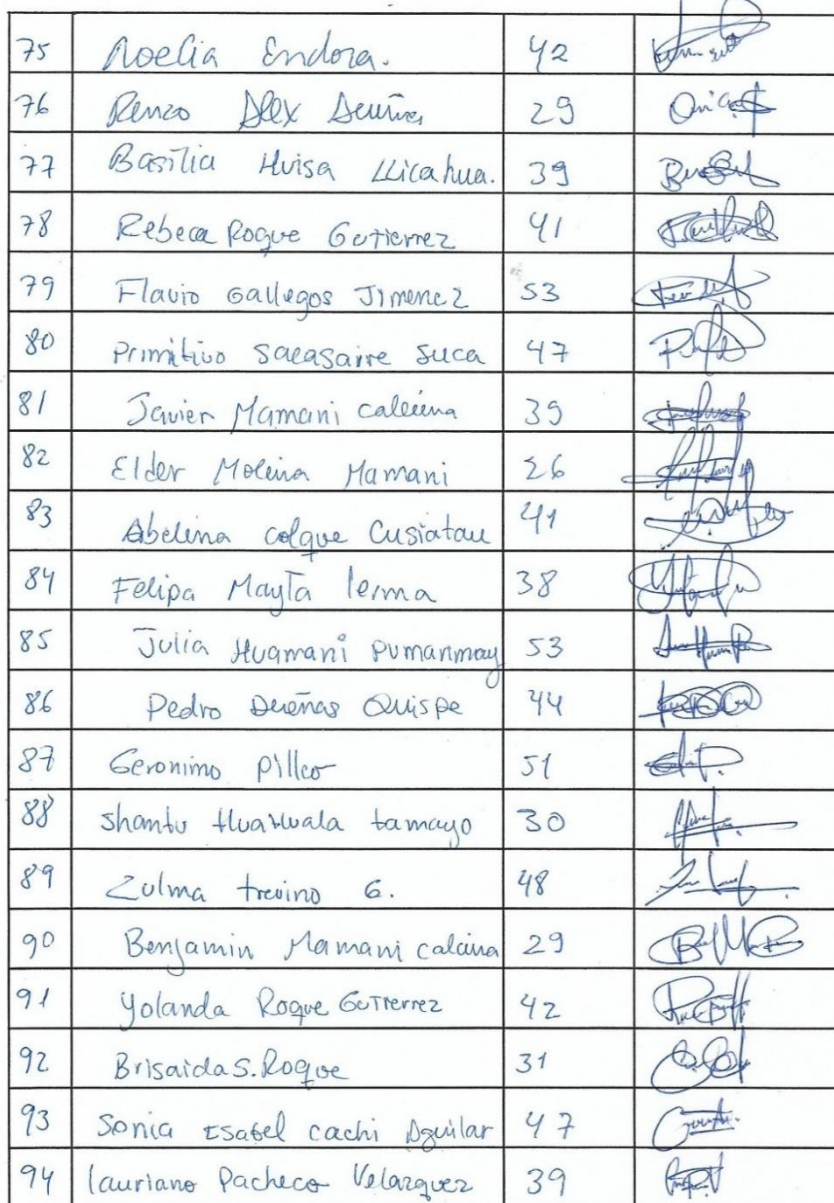 75 Noelia Endora. 42
76 Renzo Alex 29
77 Basilia Huisa Llicahua. 39
78 Rebeca Roque Gutierrez 41
79 Flavio Gallegos Jimenez 53
80 Primitivo Sacasaire Suca 47
81 Javier Mamani 39
82 Elder Molina Mamani 26
83 Abelina Colque 41
84 Felipa Mayta lerma 38
85 Julia Huamani Pumanmay 53
86 Pedro Quispe 44
87 Geronimo Pillco 51
88 Shantu tamayo 30
89 Zulma trevino G. 48
90 Benjamin Mamani calcina 29
91 Yolanda Roque Gutierrez 42
92 Brisaida S. Roque 31
93 Sonia Isabel cachi Aguilar 47
94 lauriano Pacheco Velazquez 39